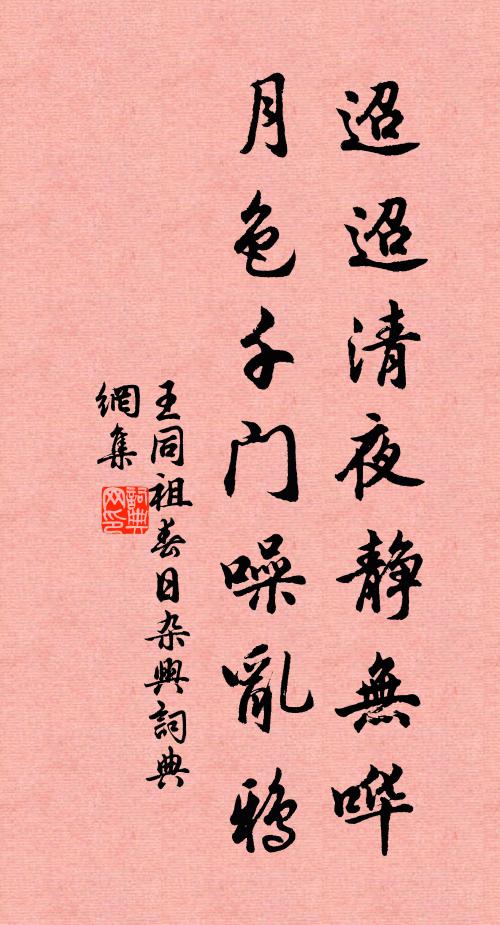 迢迢清夜静無哗
月色千门噪亂鴉
王同祖春日杂興詞典
網集
詞典网印